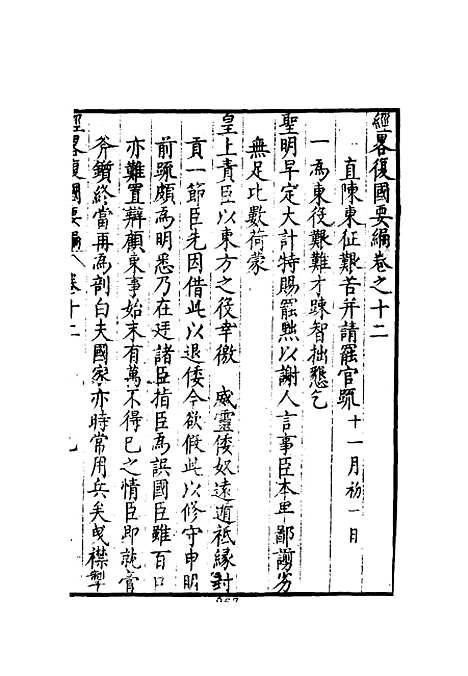 經畧復國要編卷之十二
直陳東征艱苦并請罷官疏 十一月初一日
一為東役艱難才踈智拙懇乞
聖明早定大計特賜罷黜以謝人言事臣本卑鄙謭劣
無足比數荷蒙
皇上責臣以東方之役幸徼 威靈倭奴遠遁祗緣封
貢一節臣先因借此以退倭今欲假此以修守申明
前疏頗為明悉乃在廷諸臣指臣為誤國臣雖百口
亦難置辯顧東事始末有萬不得已之情臣即就膏
斧鑕終當再為剖白夫國家亦時常用兵矣曵襟掣
經畧復國要編 卷十二
967